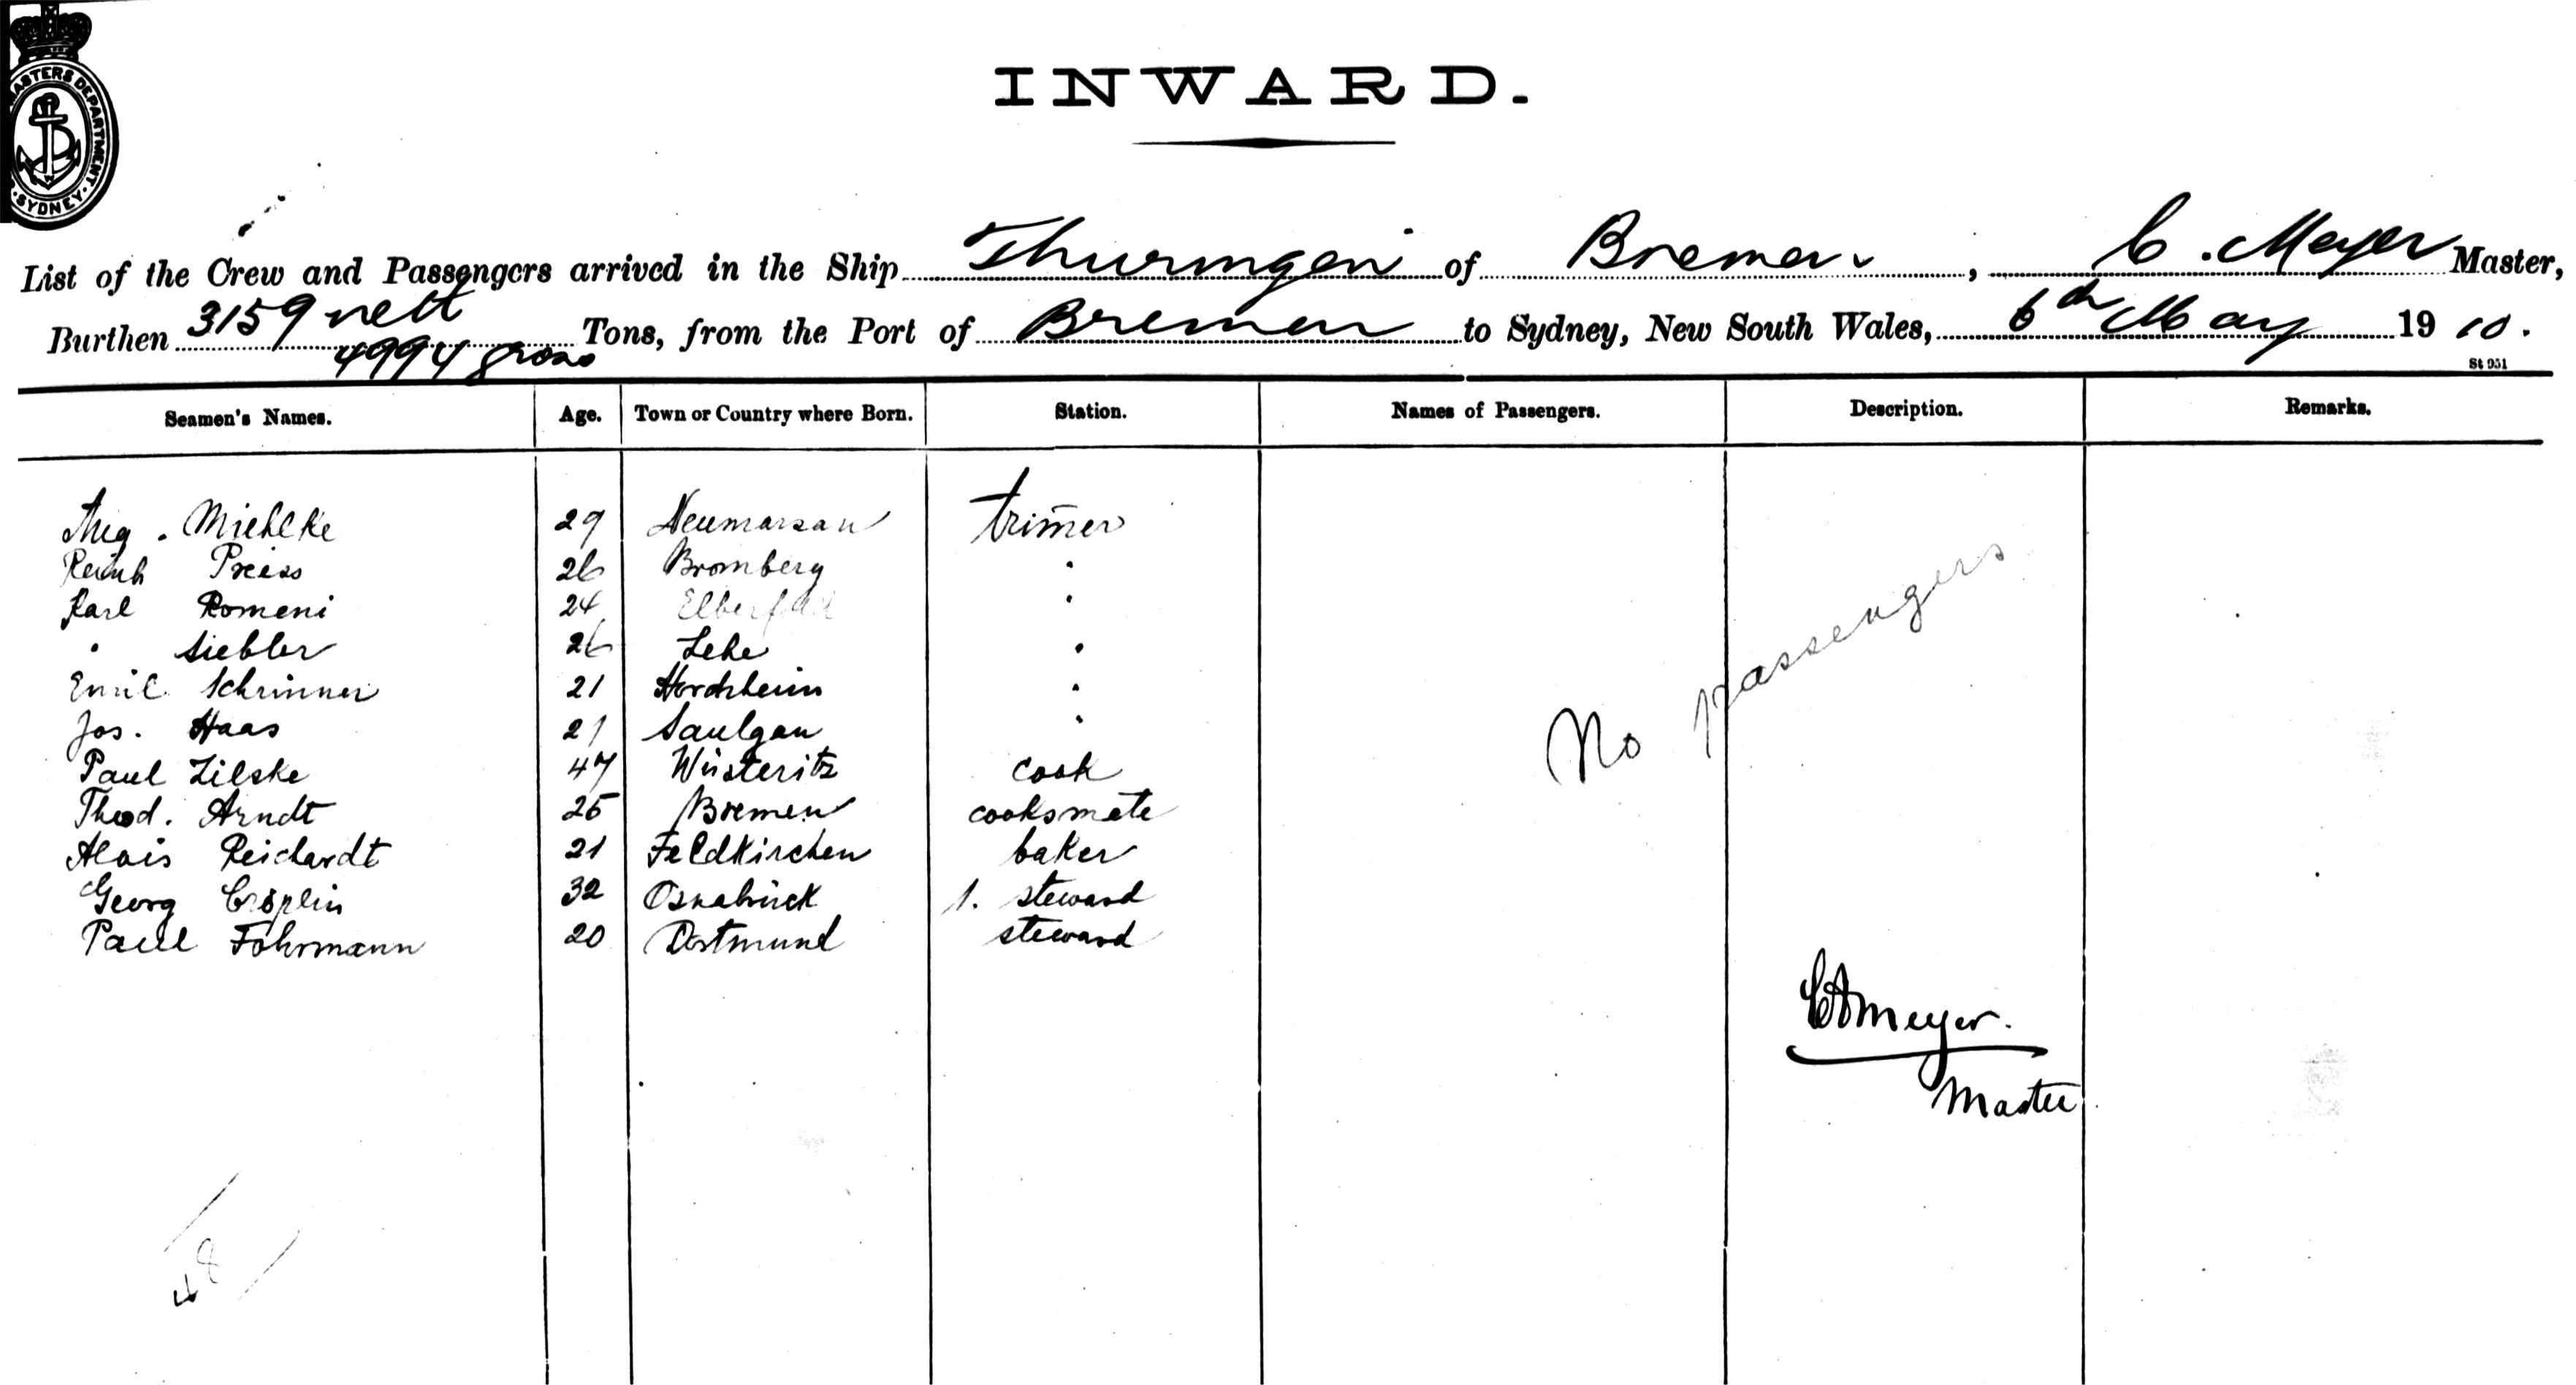 MASTERS DEPARTMENT · SYDNEY ·
INWARD.
List of the Crew and Passengers arrived in the Ship Thuringen of Bremen, C. Meyer Master,
Burthen 3159 nett 4994 gross Tons, from the Port of Bremen to Sydney, New South Wales, 6th May 1910.
St 951
Seamen's Names. Age. Town or Country where Born. Station. Names of Passengers. Description. Remarks.
Aug. Miehlke 29 trimer
Reinh Preiss 26 Bromberg "
Karl Romeni 24 Elberfeld "
" Siebler 26 Lehe "
Emil Schrinner 21 "
Jos. Haas 21 Saulgau "
Paul Zilske 47 Wüsteritz cook
Theod. Arndt 25 Bremen cooksmate
Alois Reichardt 21 Feldkirchen baker
Georg Cröplin 32 Osnabrück 1. steward
Paul Fohrmann 20 Dortmund steward
No passengers
CAMeyer.
Master
48